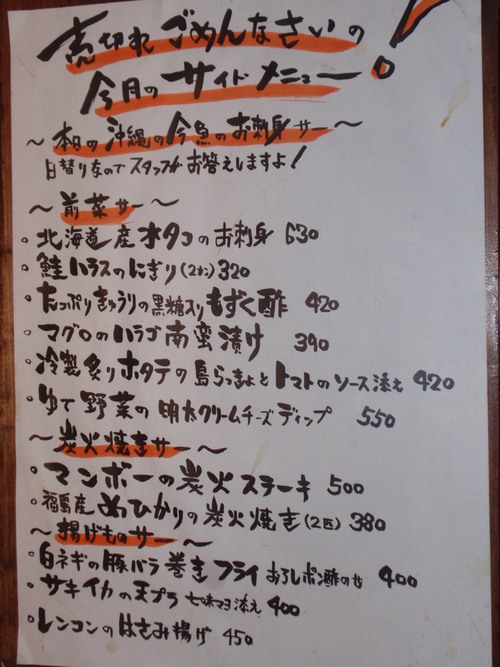 売切れごめんなさいの
今月のサイドメニュー!
〜本日の沖縄の今魚のお刺身サー〜
日替りなのでスタッフがお答えしますよ!
〜前菜サー〜
。北海道産水タコのお刺身 630
。鮭ハラスのにぎり(2カン)320
。たっぷりきゅうりの黒糖入りもずく酢 420
。マグロのハラゴ南蛮漬け 390
。冷製炙りホタテの島らっきょとトマトのソース添え 420
。ゆで野菜の明太クリームチーズディップ 550
〜炭火焼きサー〜
。マンボーの炭火ステーキ 500
。福島産めひかりの炭火焼き(2匹) 380
〜揚げものサー〜
。白ネギの豚バラ巻きフライ おろしポン酢のせ 400
。サキイカの天プラ 七味マヨ添え 400
。レンコンのはさみ揚げ 450